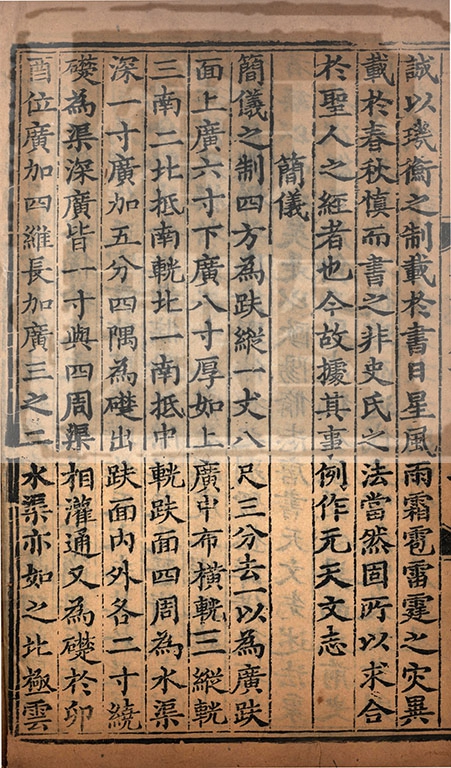 誠以璣衡之制載於書日星風雨霜雹雷霆之灾異
載於春秋慎而書之非史氏之法當然固所以求合
於聖人之經者也今故據其事例作元天文志
簡儀
簡儀之制四方為趺縱一丈八尺三分去一以為廣趺
面上廣六寸下廣八寸厚如上廣中布橫輄三縱輄
三南二北抵南輄北一南抵中輄趺面四周為水渠
深一寸廣加五分四隅為礎出趺面内外各二寸繞
礎為渠深廣皆一寸與四周渠相灌通又為礎於卯
酉位廣加四維長加廣三之二水渠亦如之北極雲